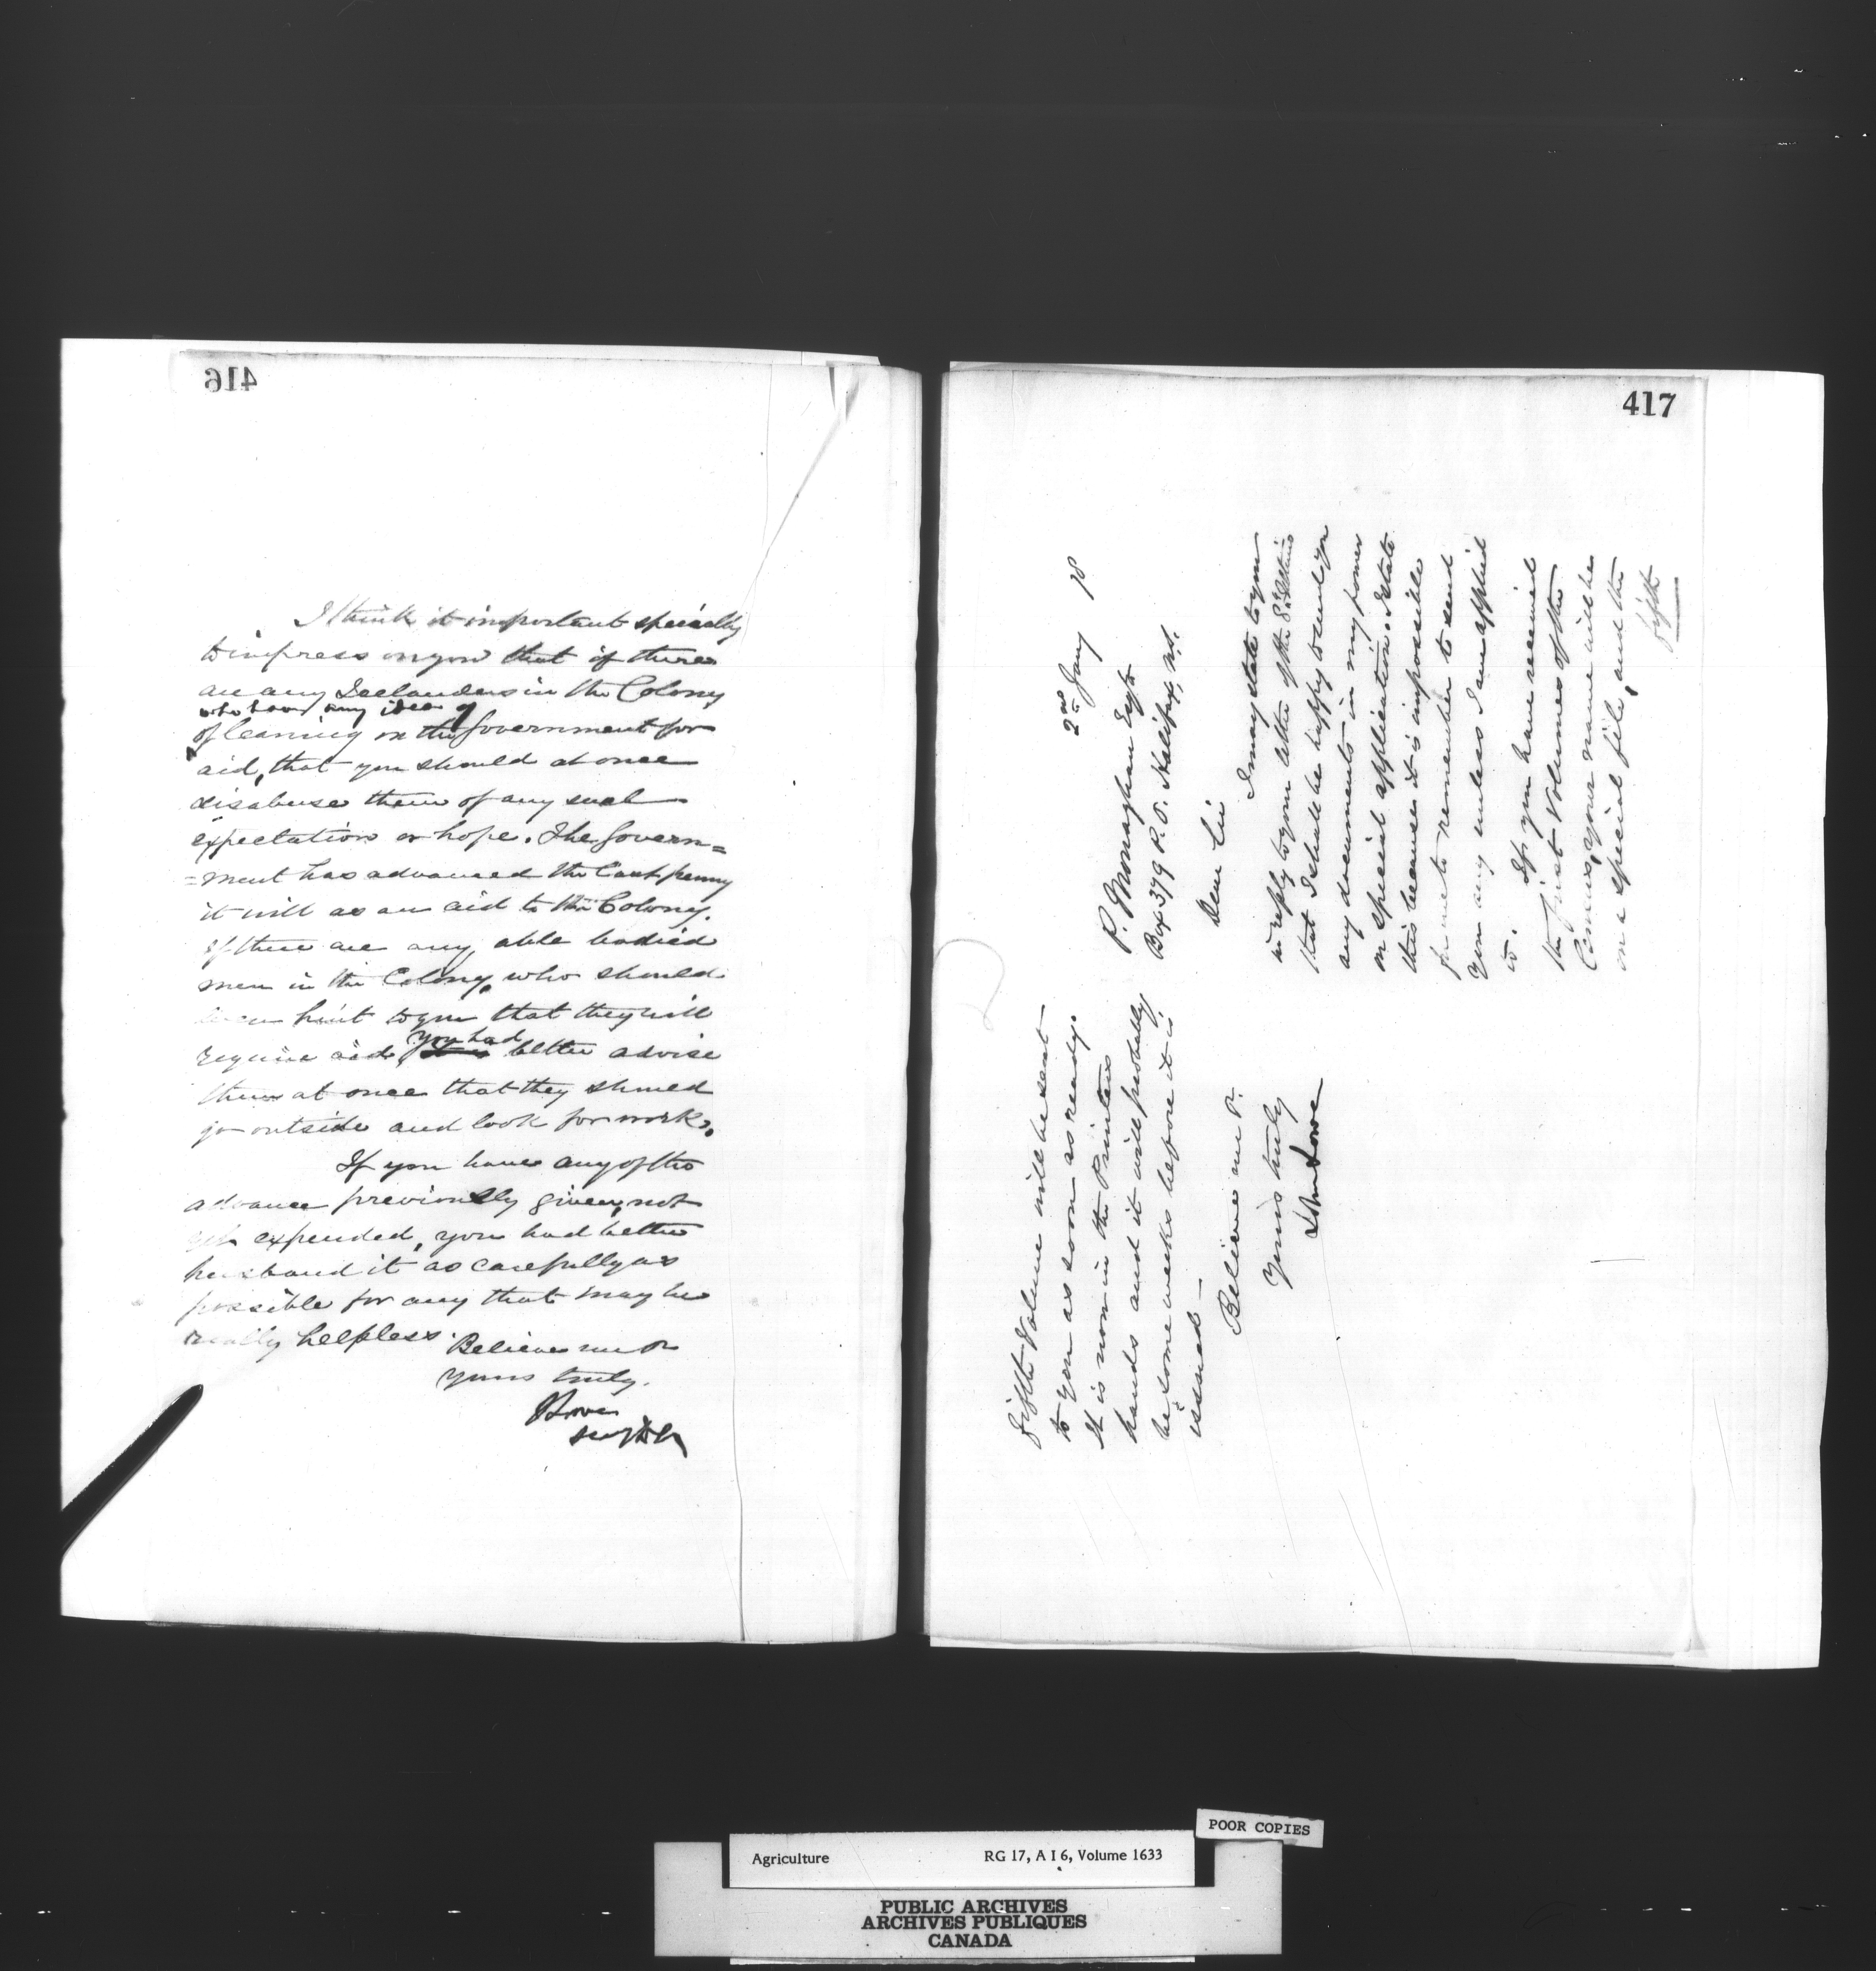 416
I think it important specially
to impress on you that if there
are any Icelanders in the Colony
who have any idea of
of leaning on the Government for
aid, that you should at once
disabuse them of any such
expectation or hope. The Govern=
=ment has advanced the last penny
it will as an aid to the Colony.
If there are any able bodied
men in the Colony, who should
even hint to you that they will
require aid, you had better advise
them at once that they should
go outside and look for work.
If you have any of the
advance previously given, not
yet expended, you had better
husband it as carefully as
possible for any that may be
really helpless.
Believe me &
yours truly.
J Lowe
Secy D A
417
2nd Jany 18
P. Monaghan Esqr
Box 379 P.O. Halifax, N.S.
Dear Sir
I may state to you
in reply to your letter of the 8th
that I shall be happy to send you
any documents in my power
on special application. I state
this because it is impossible
for me to remember to send
you any unless I am applied
to.
If you have received
the first Volumes of the
Census, your name will be
on a special file, and the
fifth
fifth Volume will be sent
to you as soon as ready.
It is now in the Printers
hands and it will probably
be some weeks before it is
issued —
Believe me &.
Yours truly
John Lowe
POOR COPIES
Agriculture RG 17, A I 6, Volume 1633
PUBLIC ARCHIVES
ARCHIVES PUBLIQUES
CANADA